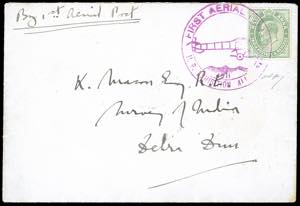 By 1st Aerial Post
FIRST AERIAL
K. Mason Esq. R.E.
Survey of India
Dehra Dun